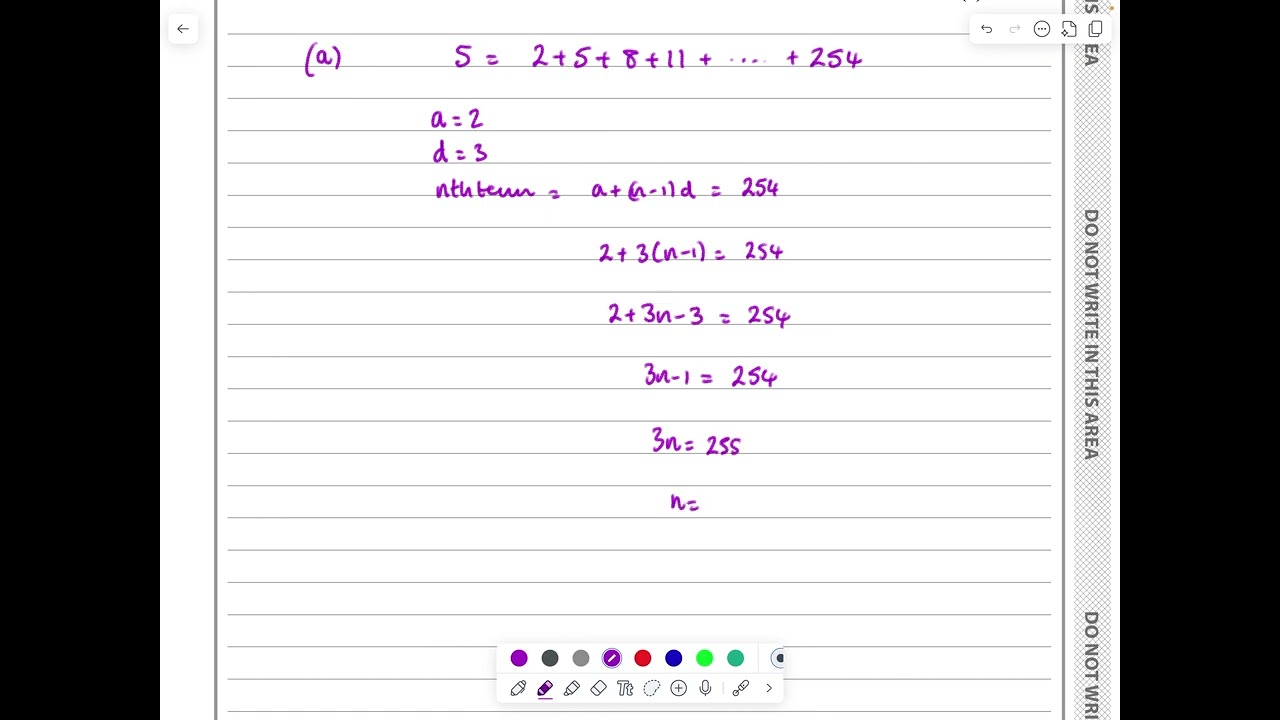 (a) S = 2+5+8+11+ .... +254
a=2
d=3
nth term = a+(n-1)d = 254
2+3(n-1) = 254
2+3n-3 = 254
3n-1 = 254
3n = 255
n=
DO NOT WRITE IN THIS AREA
DO NOT WRI
IS
EA
Tt